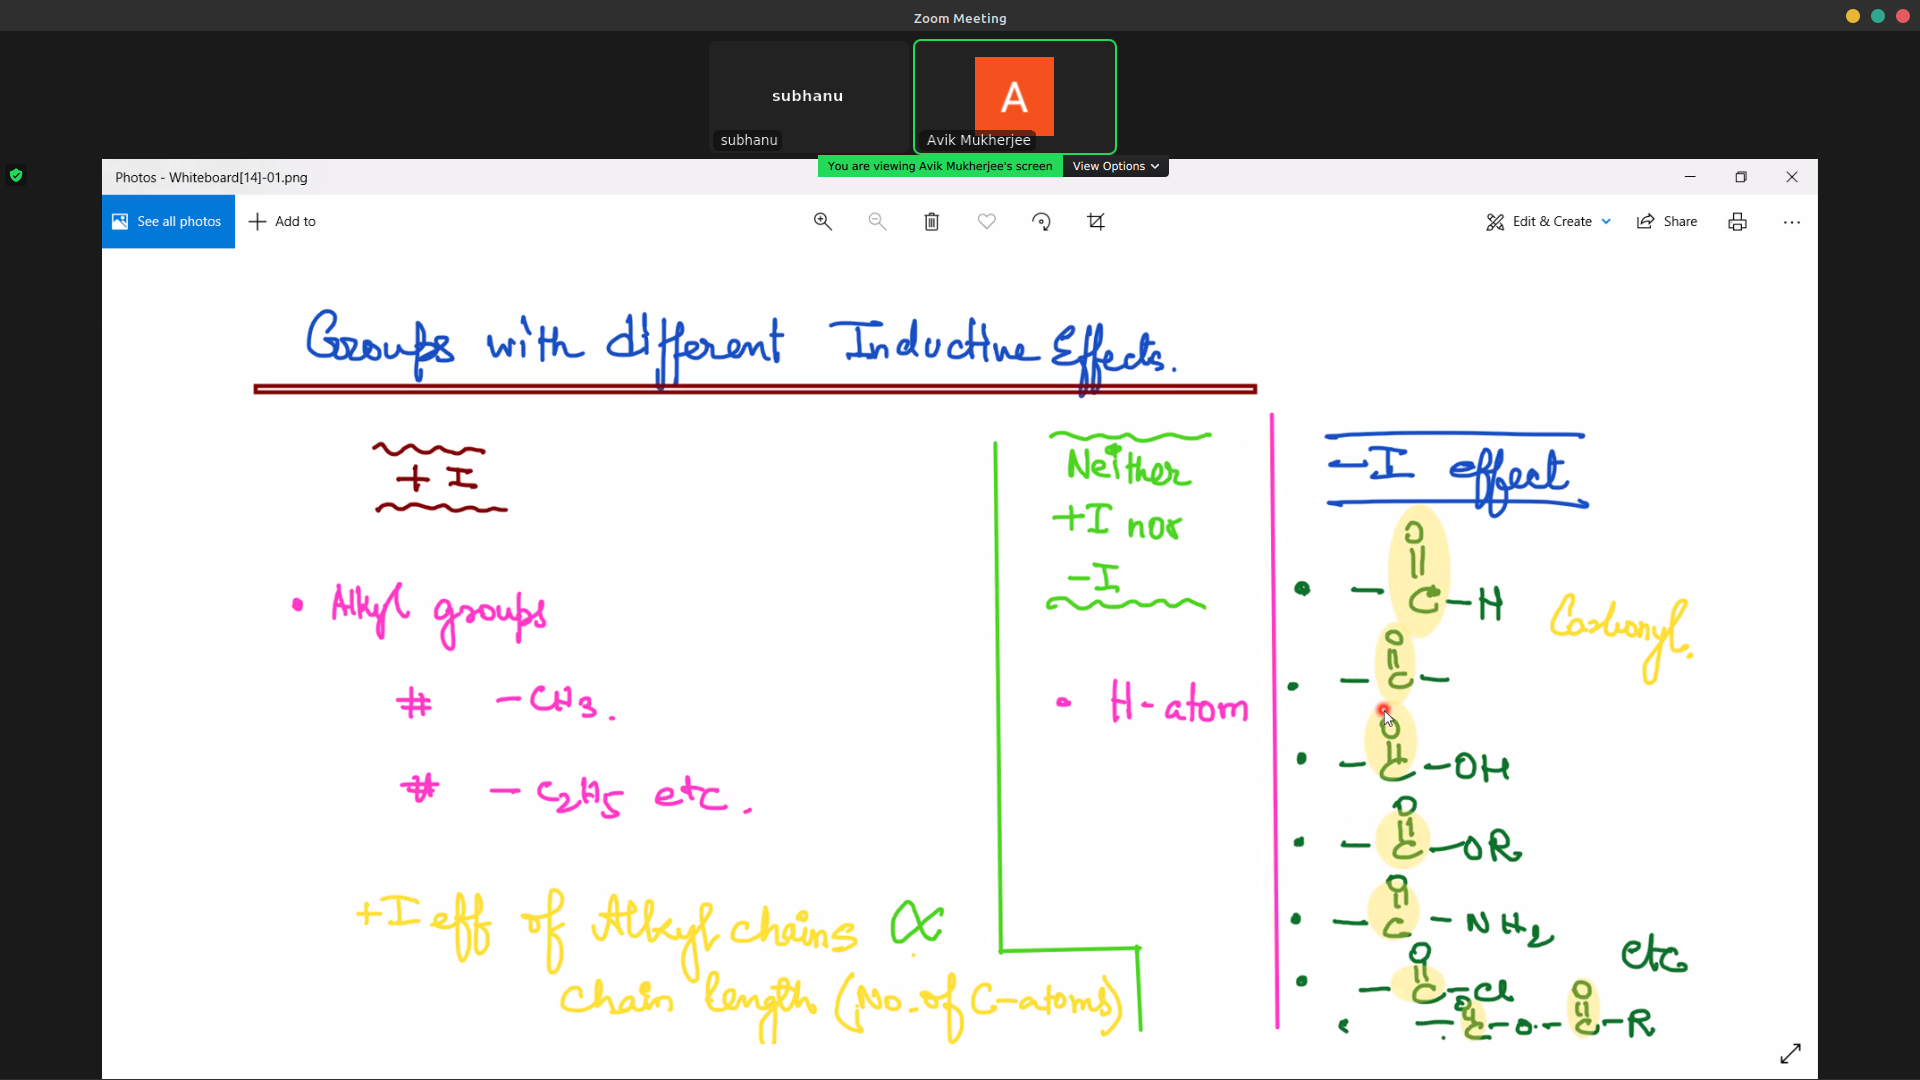 Zoom Meeting
subhanu
subhanu
A
Avik Mukherjee
You are viewing Avik Mukherjee's screen
View Options
Photos - Whiteboard[14]-01.png
See all photos
Add to
Edit & Create
Share
Groups with different Inductive Effects.
+ I
• Alkyl groups
# -CH3.
# - C2H5 etc.
+I eff of Alkyl chains ∝
chain length (No. of C-atoms)
Neither
+I nor
-I
• H-atom
-I effect
O
• - C - H
Carbonyl.
O
• - C -
O
• - C - OH
O
• - C - OR
O
• - C - NH2
etc
O
• - C - Cl
O O
• - C - O - C - R